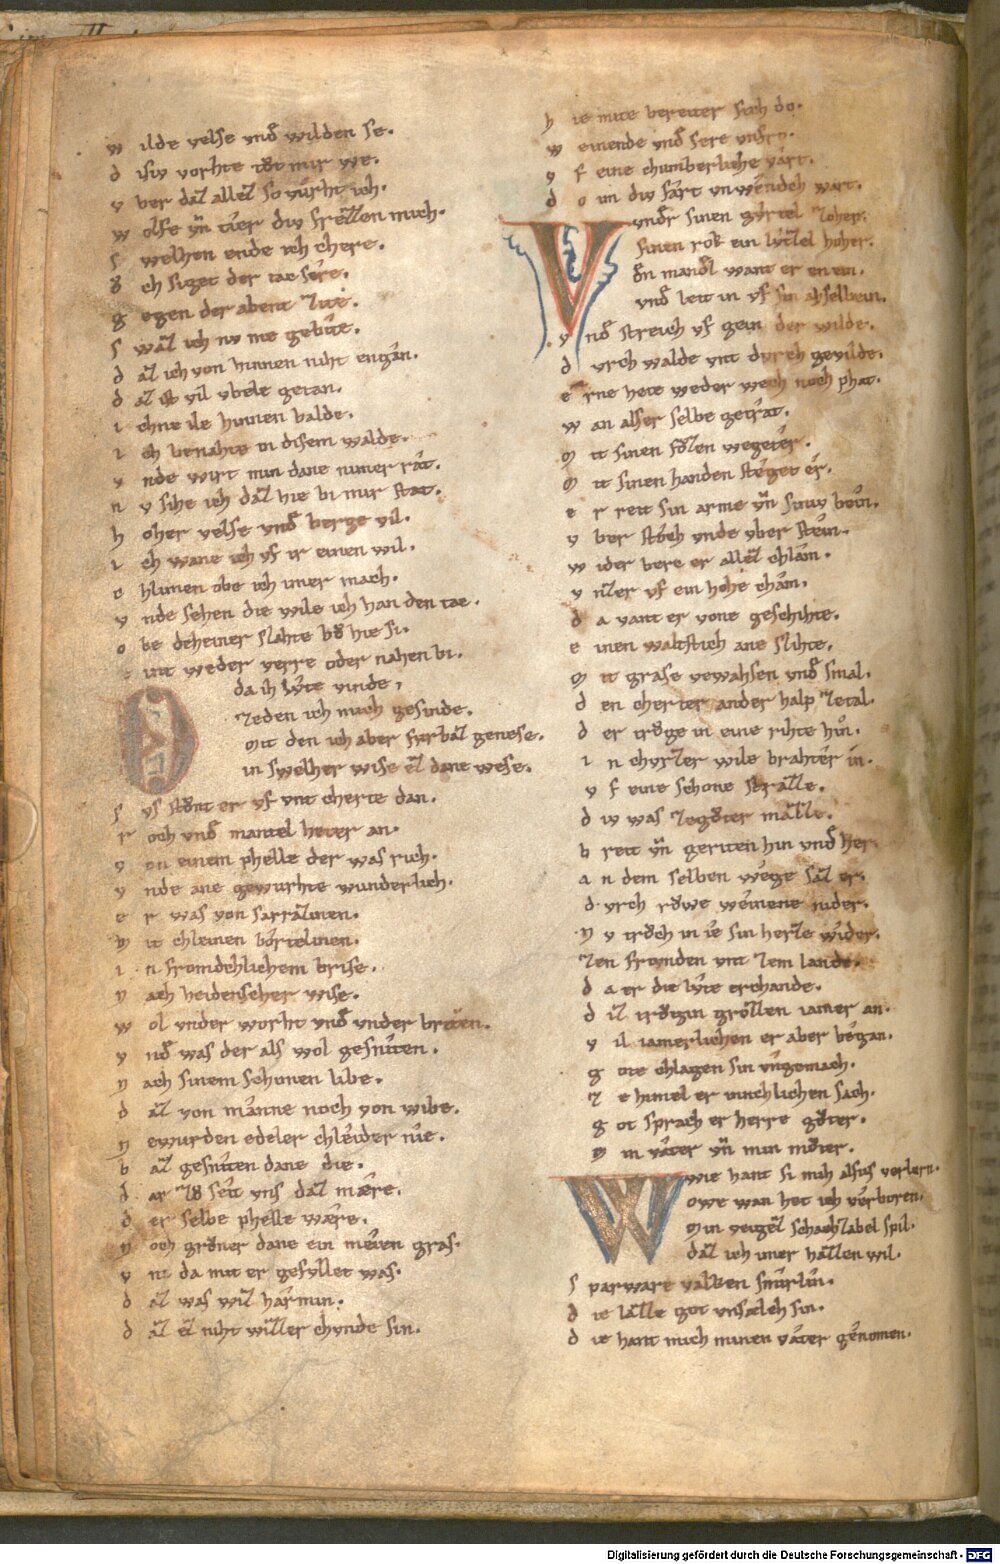 w ilde velse vnd̄ wilden se.
d isiv vorhte tůt mir we.
v ber daz allez so vúrht ich.
w olfe vn̄ tîer div frezzen mich.
s welhen ende ich chere.
ŏ ch siget der tac sere.
g egen der abent zite.
s waz ich nv me gebîte.
d az ich von hinnen niht engân.
d az ist vil vbele getan.
i chne ile hinnen balde.
i ch benahte in disem walde.
v nde wirt min dane nimer rât.
n v sihe ich daz hie bi mir stat.
h oher velse vnd̄ berge vil.
i ch wane ich vf ir einen wil.
c hlimen obe ich imer mach.
v nde sehen die wile ich han den tac.
o be deheiner slahte bŏ hie si.
e int weder verre oder nahen bi.
da ih lv́te vinde,
zeden ich mich gesinde.
mit den ich aber fúrbaz genese.
in swelher wise ez dane wese.
s vs stůnt er vf vnt cherte dan.
r och vnd̄ mantel heter an.
v on einem phelle der was rich.
v nde ane gewurhte wunderlich.
e r was von sarrazinen.
m it chleinen bôrtelinen.
i n fromdechlichem brise.
n ach heidenscher wise.
w ol vnder worht vnd̄ vnder briten.
v nd̄ was der als wol gesniten.
n ach sinem schonen libe.
d az von manne noch von wibe.
n ewurden edeler chleider nie.
b az gesniten dane die.
d ar zŏ seit vns daz mære.
d er selbe phelle wære.
n och grůner dane ein meien gras.
v nt da mit er gefvllet was.
d az was wiz hârmin.
d az ez niht wizzer chvnde sin.
h ie mite bereiter sich do.
w einende vnd̄ sere vnfro.
v f eine chumberliche vârt.
d o im div fârt vnwendech wart.
Vnder sinen gúrtel zoher.
sinen rok ein lv́zel hoher.
den mandel want er en ein.
vnd̄ leit in vf sin ahselbein.
v nd̄ streich vf gein der wilde.
d vrch walde vnt dvrch gevilde.
e rne hete weder wech noch phat.
w an alser selbe getrat.
m it sinen fůzen wegeter.
m it sinen handen steget er.
e r reit sin arme vn̄ siniv bein.
v ber stôch vnde vber stein.
w ider berc er allez chlam.
v nzer vf ein hohe cham.
d a vant er vone geschihte.
e inen waltstich ane slihte.
m it grase vewahsen vnd̄ smal.
d en cherter ander halp zetal.
d er trůge in eine rihte hin.
i n chvrzer wile brahter in.
v f eine schone strazze.
d iv was zegůter mazze.
b reit vn̄ geriten hin vnd̄ her.
a n dem selben wege saz er.
d vrch růwe weinene nider.
n v trůch in îe sin herze wider.
zen frivnden vnt zem lande.
d a er die lv́te erchande.
d iz trůgin grozzen iamer an.
v il iamerlichen er aber began.
g ote chlagen sin vngemach.
z e himel er innchlichen sach.
g ot sprach er herre gůter.
m in vâter vn̄ min můter.
Wie hant si mih alsus verlorn.
owe wan het ich verboren.
min veigez schachzabel spil.
daz ich imer hazzen wil.
s parware valken smirlin.
d ie lazze got vnsælech sin.
d ie hant mich minen vâter genomen.
Digitalisierung gefördert durch die Deutsche Forschungsgemeinschaft - DFG